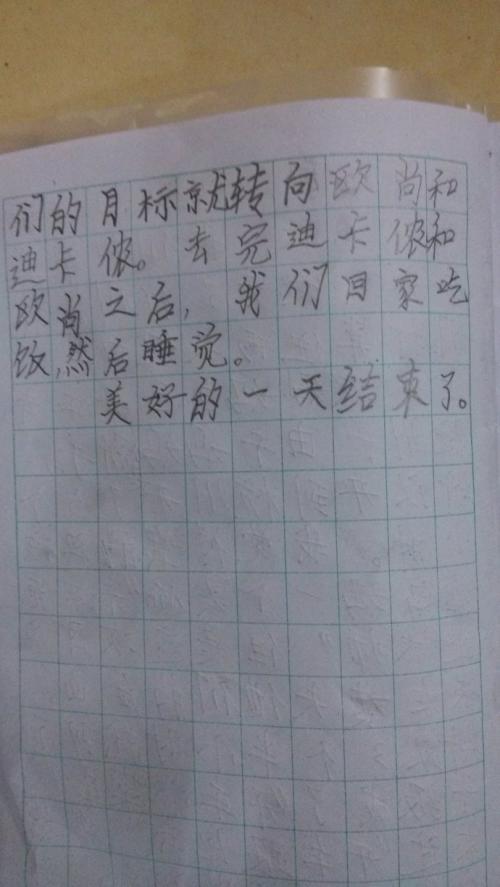 们的目标就转向欧尚和
迪卡侬。去完迪卡侬和
欧尚之后，我们回家吃
饭，然后睡觉。
美好的一天结束了。